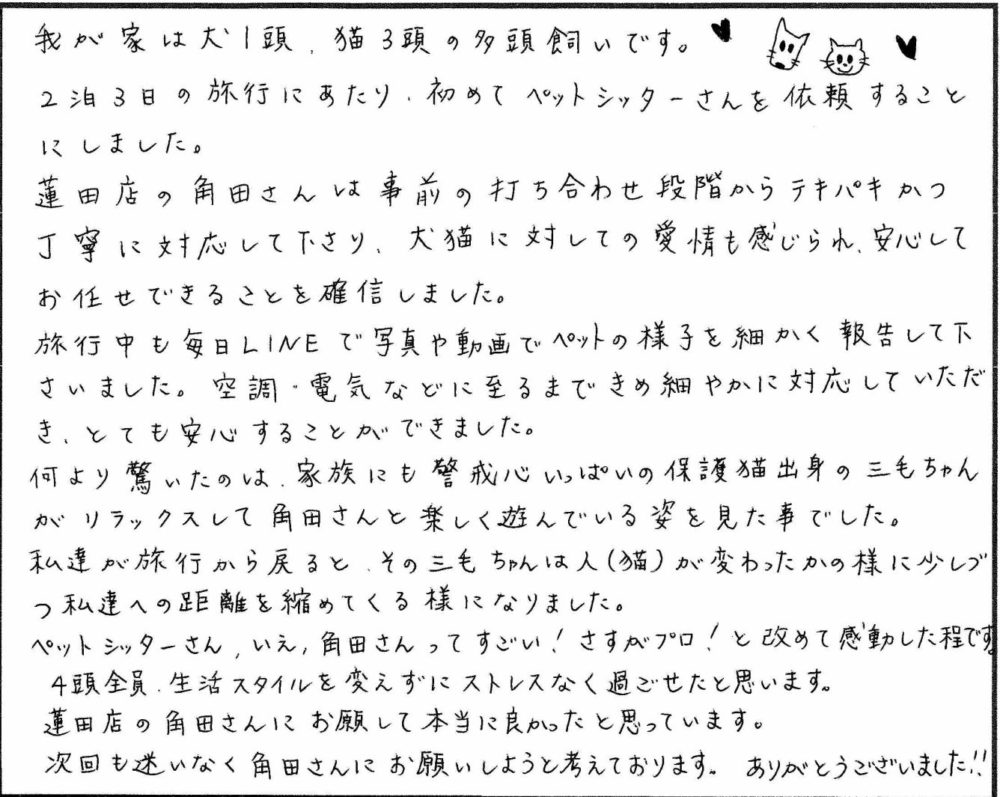 我が家は犬1頭、猫3頭の多頭飼いです。
2泊3日の旅行にあたり、初めてペットシッターさんを依頼すること
にしました。
蓮田店の角田さんは事前の打ち合わせ段階からテキパキかつ
丁寧に対応して下さり、犬猫に対しての愛情も感じられ、安心して
お任せできることを確信しました。
旅行中も毎日LINEで写真や動画でペットの様子を細かく報告して下
さいました。空調・電気などに至るまできめ細やかに対応していただ
き、とても安心することができました。
何より驚いたのは、家族にも警戒心いっぱいの保護猫出身の三毛ちゃん
がリラックスして角田さんと楽しく遊んでいる姿を見た事でした。
私達が旅行から戻ると、その三毛ちゃんは人(猫)が変わったかの様に少しづ
つ私達への距離を縮めてくる様になりました。
ペットシッターさん、いえ、角田さんってすごい!さすがプロ!と改めて感動した程です
4頭全員、生活スタイルを変えずにストレスなく過ごせたと思います。
蓮田店の角田さんにお願して本当に良かったと思っています。
次回も迷いなく角田さんにお願いしようと考えております。ありがとうございました!!